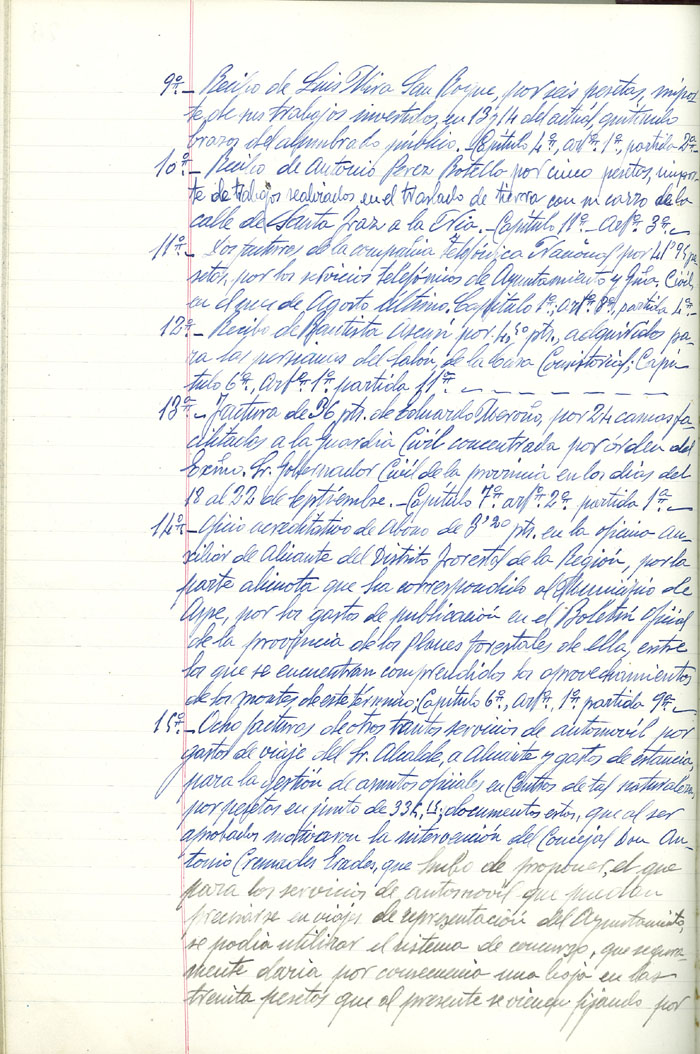 9º.- Recibo de Luis Mira San Roque, por seis pesetas, impor-
te de sus trabajos invertidos en 13 y 14 del actual, quitando
brazos del alumbrado público. Capítulo 4º, artº. 1º, partida 2ª.
10º.- Recibo de Antonio Perez Botella por cinco pesetas, impor-
te de trabajos realizados en el traslado de tierra con su carro de la
calle de Santa Faz a la Via.- Capítulo 11º.- Artº. 3º.-
11º.- Dos facturas de la compañia telefónica Nacional por 41'95 pe-
setas, por los servicios telefónicos de Ayuntamiento y Gdia. Civil,
en el mes de Agosto último. Capítulo 1º, artº 8º, partida 4ª.-
12º.- Recibo de Bautista Asensi por 4,50 pts., adquiridos pa-
ra las persianas del Salón, de la Casa Consistorial; Capí-
tulo 6º, artº. 1º partida 11ª.- - - - - - - -
13º.- Factura de 36 pts. de Eduardo Meroño, por 24 camas fa-
cilitadas a la Guardia Civil concentrada por órden del
Exmo. Sr. Gobernador Civil de la provincia en los dias del
18 al 22 de septiembre.- Capítulo 7º. artº. 2º. partida 1ª.-
14º.- Oficio acreditativo de Abono de 3'20 pts. en la oficina Au-
xiliar de Alicante del Distrito forestal de la Región, por la
parte alicuota que ha correspondido al Municipio de
Aspe, por los gastos de publicación en el Boletín oficial
de la provincia de los Planes forestales de ella, entre
la que se encuentran comprendidos los aprovechamientos
de los montes de este término; Capítulo 6º, artº, 1º, partida 9ª.-
15º.- Ocho facturas de otros tantos servicios de automovil por
gastos de viaje del Sr. Alcalde, a Alicante y gastos de estancia,
para la gestión de asuntos oficiales en Centros de tal naturaleza,
por pesetas en junto de documentos estos, que al ser
aprobados motivaron la intervención del Concejal Don An-
tonio Cremades Erades, que hubo de proponer, el que
para los servicios de automovil que puedan
precisarse en viajes de representación del Ayuntamiento,
se podia utilizar el sistema de concurso, que segura-
mente daria por consecuencia una baja en las
treinta pesetas que al presente se vienen fijando por